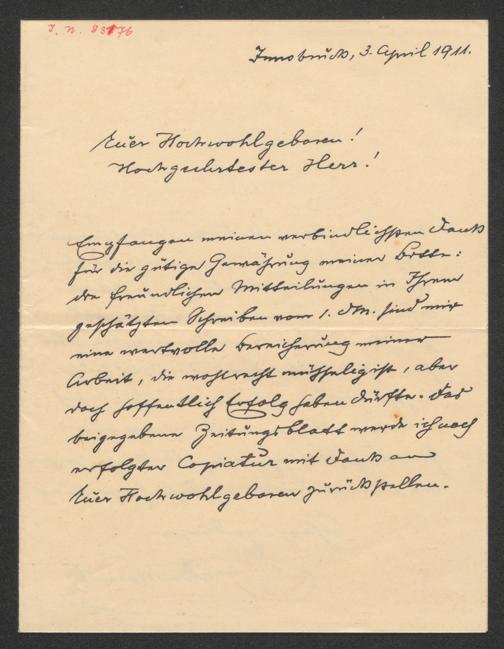 I. N. 83176
Innsbruck, 3. April 1911.
Euer Hochwohlgeboren!
Hochgeehrtester Herr!
Empfangen meinen verbindlichsten Dank
für die gütige Gewährung meiner Bitte:
die freundlichen Mitteilungen in Ihrem
geschätzten Schreiben vom 1. dM. sind mir
eine wertvolle Bereicherung meiner
Arbeit, die wohl recht mühselig ist, aber
doch hoffentlich Erfolg haben dürfte. Das
beigegebene Zeitungsblatt werde ich nach
erfolgter Copiatur mit Dank an
Euer Hochwohlgeboren zurückstellen.